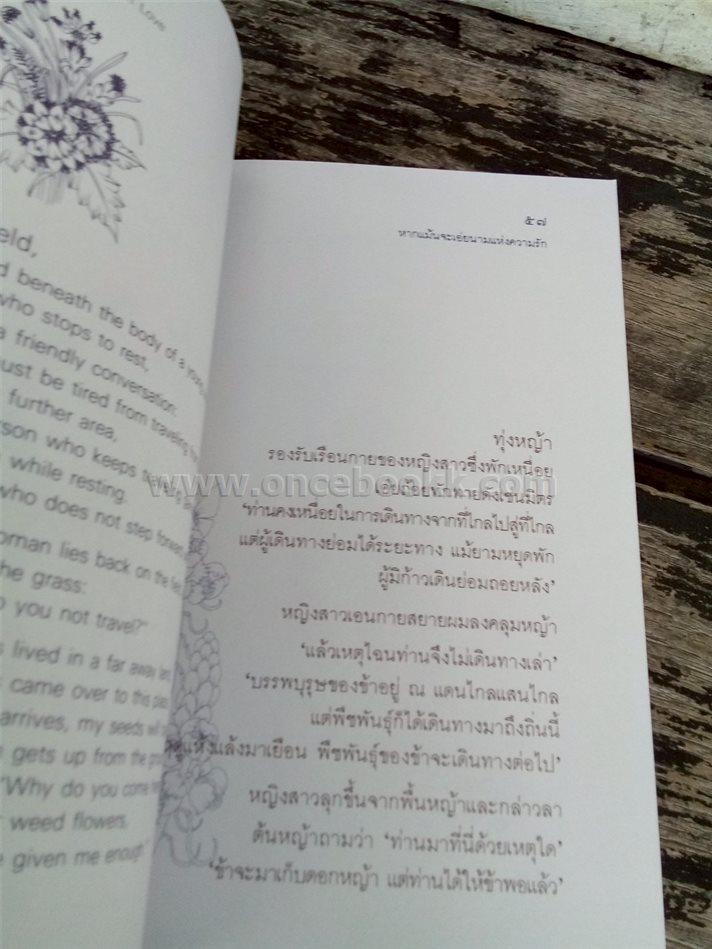 Love
eld,
d beneath the body of a young
who stops to rest,
a friendly conversation:
ust be tired from traveling
further area,
rson who keeps traveling
while resting.
who does not step forward
oman lies back on the
he grass:
o you not travel?"
s lived in a far away land
came over to this place
arrives, my seeds will
e gets up from the
"Why do you come
r weed flowers.
e given me enough."
๕๗
หากแม้นจะเอ่ยนามแห่งความรัก
ทุ่งหญ้า
รองรับเรือนกายของหญิงสาวซึ่งพักเหนื่อย
เอ่ยถ้อยทักทายดังเช่นมิตร
‘ท่านคงเหนื่อยในการเดินทางจากที่ไกลไปสู่ที่ไกล
แต่ผู้เดินทางย่อมได้ระยะทาง แม้ยามหยุดพัก
ผู้มิก้าวเดินย่อมถอยหลัง’
หญิงสาวเอนกายสยายผมลงคลุมหญ้า
‘แล้วเหตุไฉนท่านจึงไม่เดินทางเล่า’
‘บรรพบุรุษของข้าอยู่ ณ แดนไกลแสนไกล
แต่พืชพันธุ์ก็ได้เดินทางมาถึงถิ่นนี้
แห้งแล้งมาเยือน พืชพันธุ์ของข้าจะเดินทางต่อไป’
หญิงสาวลุกขึ้นจากพื้นหญ้าและกล่าวลา
ต้นหญ้าถามว่า ‘ท่านมาที่นี่ด้วยเหตุใด’
‘ข้าจะมาเก็บดอกหญ้า แต่ท่านได้ให้ข้าพอแล้ว’
www.oncebookk.com